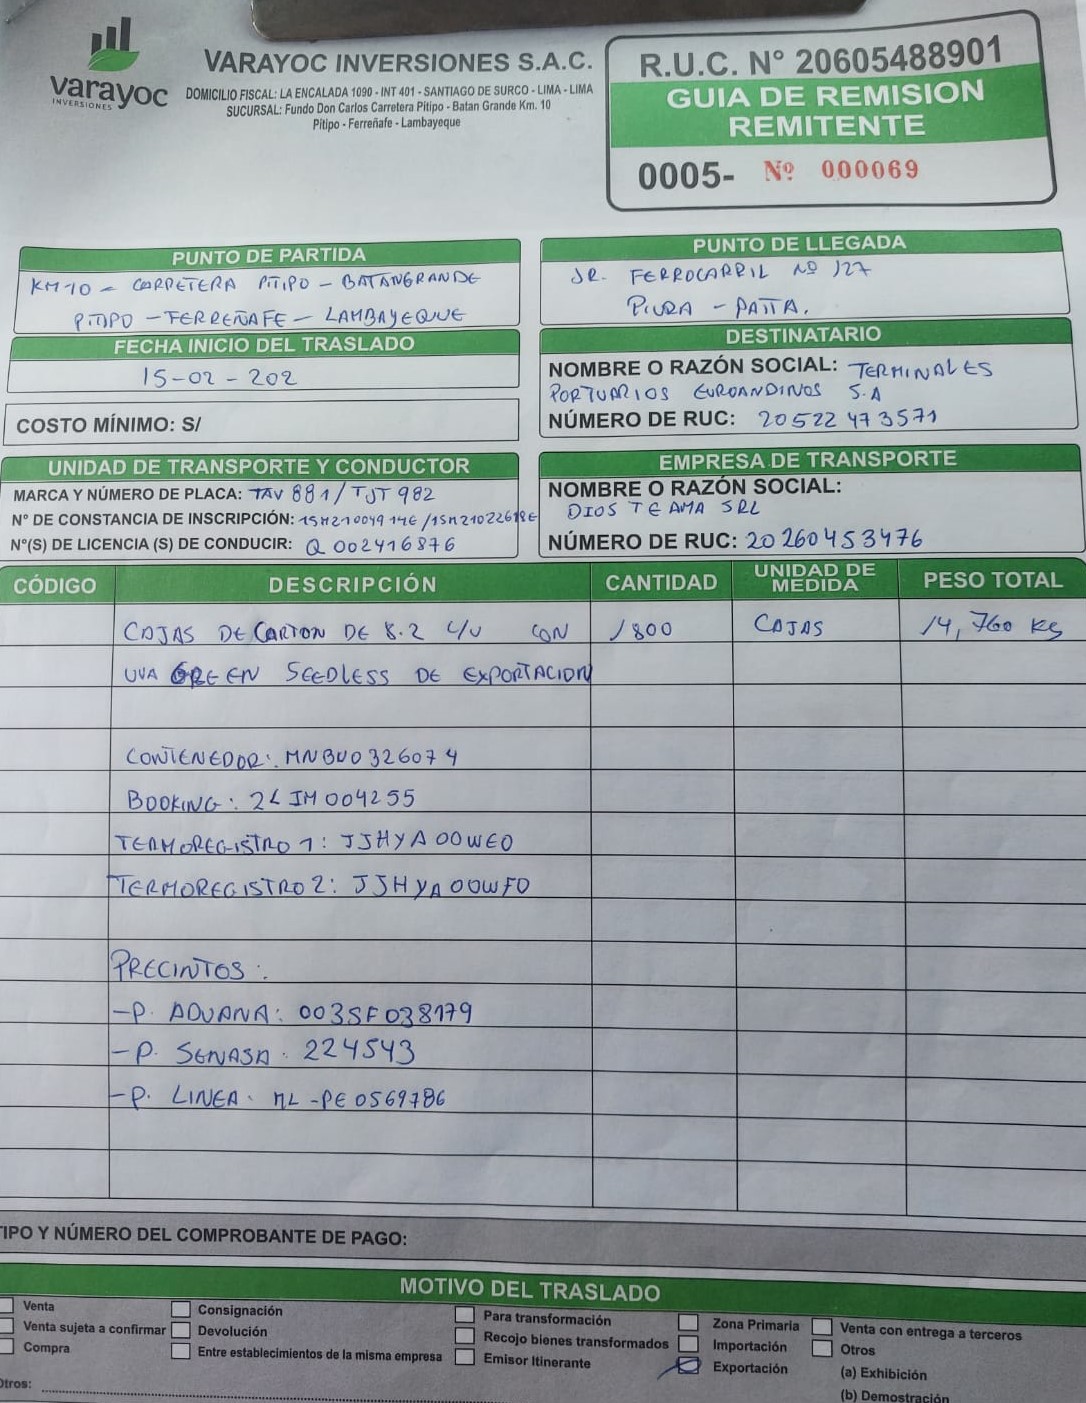 varayoc
INVERSIONES
VARAYOC INVERSIONES S.A.C.
DOMICILIO FISCAL: LA ENCALADA 1090 - INT 401 - SANTIAGO DE SURCO - LIMA - LIMA
SUCURSAL: Fundo Don Carlos Carretera Pitipo - Batan Grande Km. 10
Pitipo - Ferreñafe - Lambayeque
R.U.C. N° 20605488901
GUIA DE REMISION
REMITENTE
0005- Nº 000069
PUNTO DE PARTIDA
KM 10 - CARRETERA PITIPO - BATANGRANDE
PITIPO - FERREÑAFE - LAMBAYEQUE
PUNTO DE LLEGADA
JR. FERROCARRIL Nº 127
PIURA - PAITA.
FECHA INICIO DEL TRASLADO
15-02-202
COSTO MÍNIMO: S/
DESTINATARIO
NOMBRE O RAZÓN SOCIAL: TERMINALES
PORTUARIOS EUROANDINOS S.A
NÚMERO DE RUC: 20522473571
UNIDAD DE TRANSPORTE Y CONDUCTOR
MARCA Y NÚMERO DE PLACA: TAV 881/TJT 982
N° DE CONSTANCIA DE INSCRIPCIÓN: 15M21004914E/15M21022618E
N°(S) DE LICENCIA (S) DE CONDUCIR: Q 002416876
EMPRESA DE TRANSPORTE
NOMBRE O RAZÓN SOCIAL:
DIOS TE AMA SRL
NÚMERO DE RUC: 20260453476
CÓDIGO DESCRIPCIÓN CANTIDAD UNIDAD DE MEDIDA PESO TOTAL
CAJAS DE CARTON DE 8.2 C/U CON 1800 CAJAS 14,760 KG
UVA GREEN SEEDLESS DE EXPORTACION
CONTENEDOR: MNBU0326074
BOOKING: 2LIM004255
TERMOREGISTRO 1: JJHYA00WE0
TERMOREGISTRO 2: JJHYA00WF0
PRECINTOS:
-P. ADUANA: 003SF038179
-P. SENASA: 224543
-P. LINEA: ML-PE0569786
TIPO Y NÚMERO DEL COMPROBANTE DE PAGO:
MOTIVO DEL TRASLADO
Venta Consignación Para transformación Zona Primaria Venta con entrega a terceros
Venta sujeta a confirmar Devolución Recojo bienes transformados Importación Otros
Compra Entre establecimientos de la misma empresa Emisor Itinerante Exportación (a) Exhibición
Otros: (b) Demostración